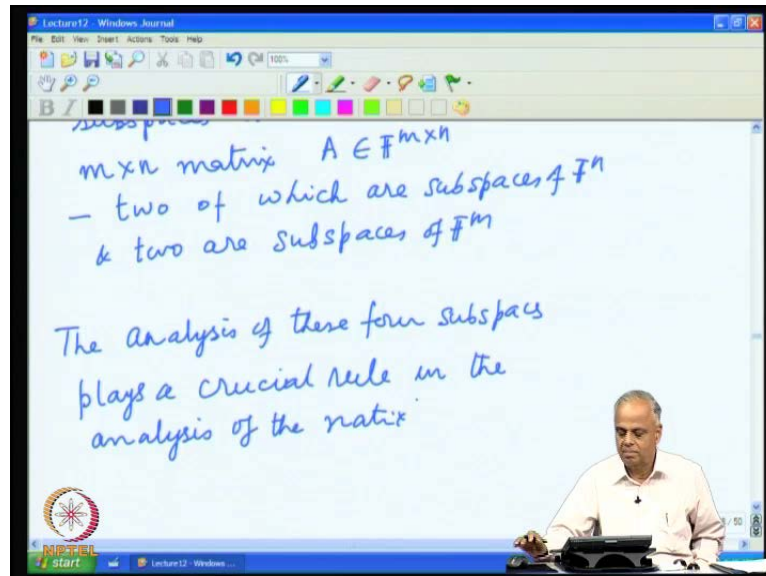 Lecture12 - Windows Journal
File Edit View Insert Actions Tools Help
100%
B I
subspaces
m×n matrix A ∈ F^{m×n}
– two of which are subspaces of F^n
& two are subspaces of F^m
The analysis of these four subspacs
plays a crucial rule in the
analysis of the natix
/ 50
NPTEL
start Lecture12 - Windows ...